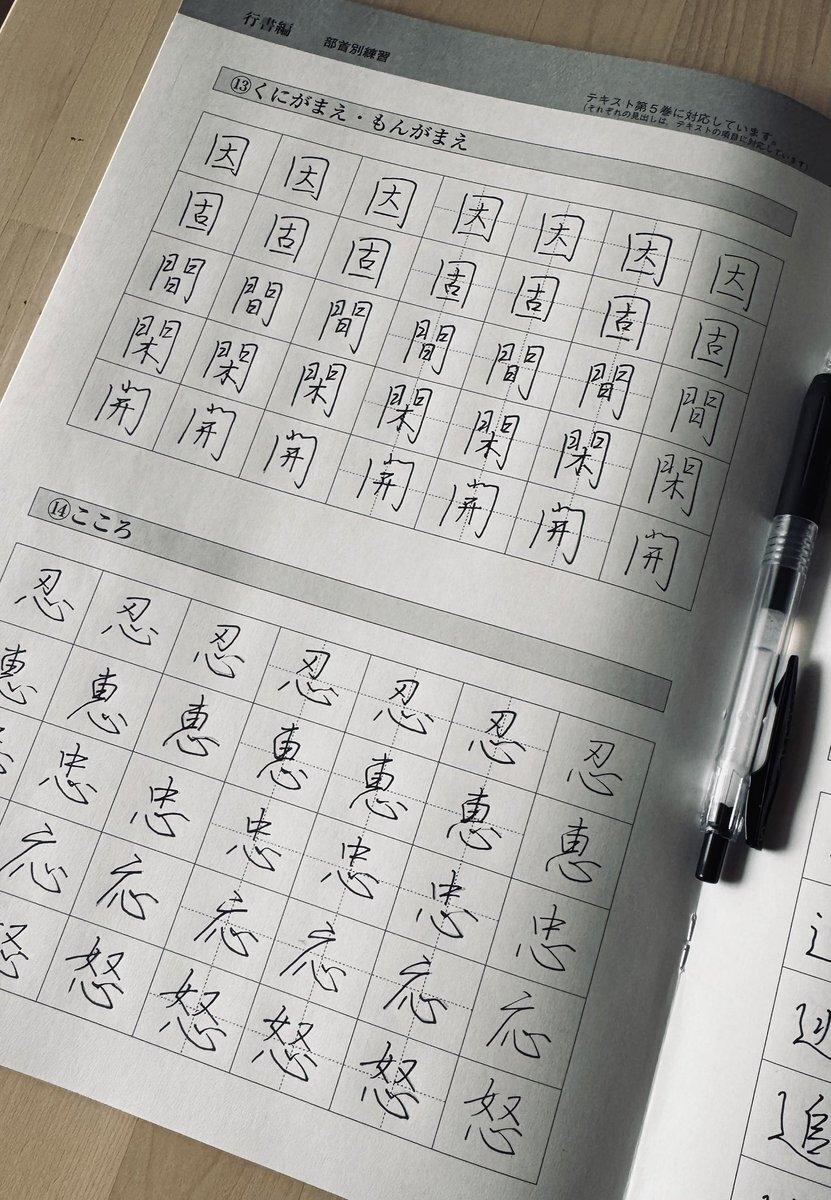 行書編 部首別練習
テキスト第5巻に対応しています。
(それぞれの見出しは、テキストの項目に対応しています)
⑬くにがまえ・もんがまえ
因 因 因 因 因 因 因
固 固 固 固 固 固 固
間 間 間 間 間 間 間
閑 閑 閑 閑 閑 閑 閑
開 開 開 開 開 開 開
⑭こころ
忍 忍 忍 忍 忍 忍 忍
恵 恵 恵 恵 恵 恵 恵
忠 忠 忠 忠 忠 忠
応 応 応 応 応 応
怒 怒 怒 怒 怒
追